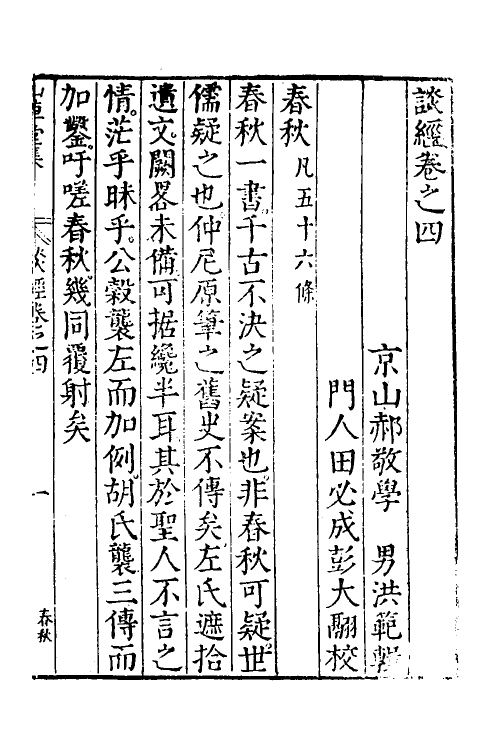 談經卷之四
京山郝敬學　男洪範輯
門人田必成彭大翮校
春秋凡五十六條
春秋一書千古不決之疑案也非春秋可疑世
儒疑之也仲尼原筆之舊史不傳矣左氏遮拾
遺文闕畧未備可据纔半耳其於聖人不言之
情茫乎昧乎公穀襲左而加例胡氏襲三傳而
加鑿吁嗟春秋幾同覆射矣
談經卷之四　一　春秋